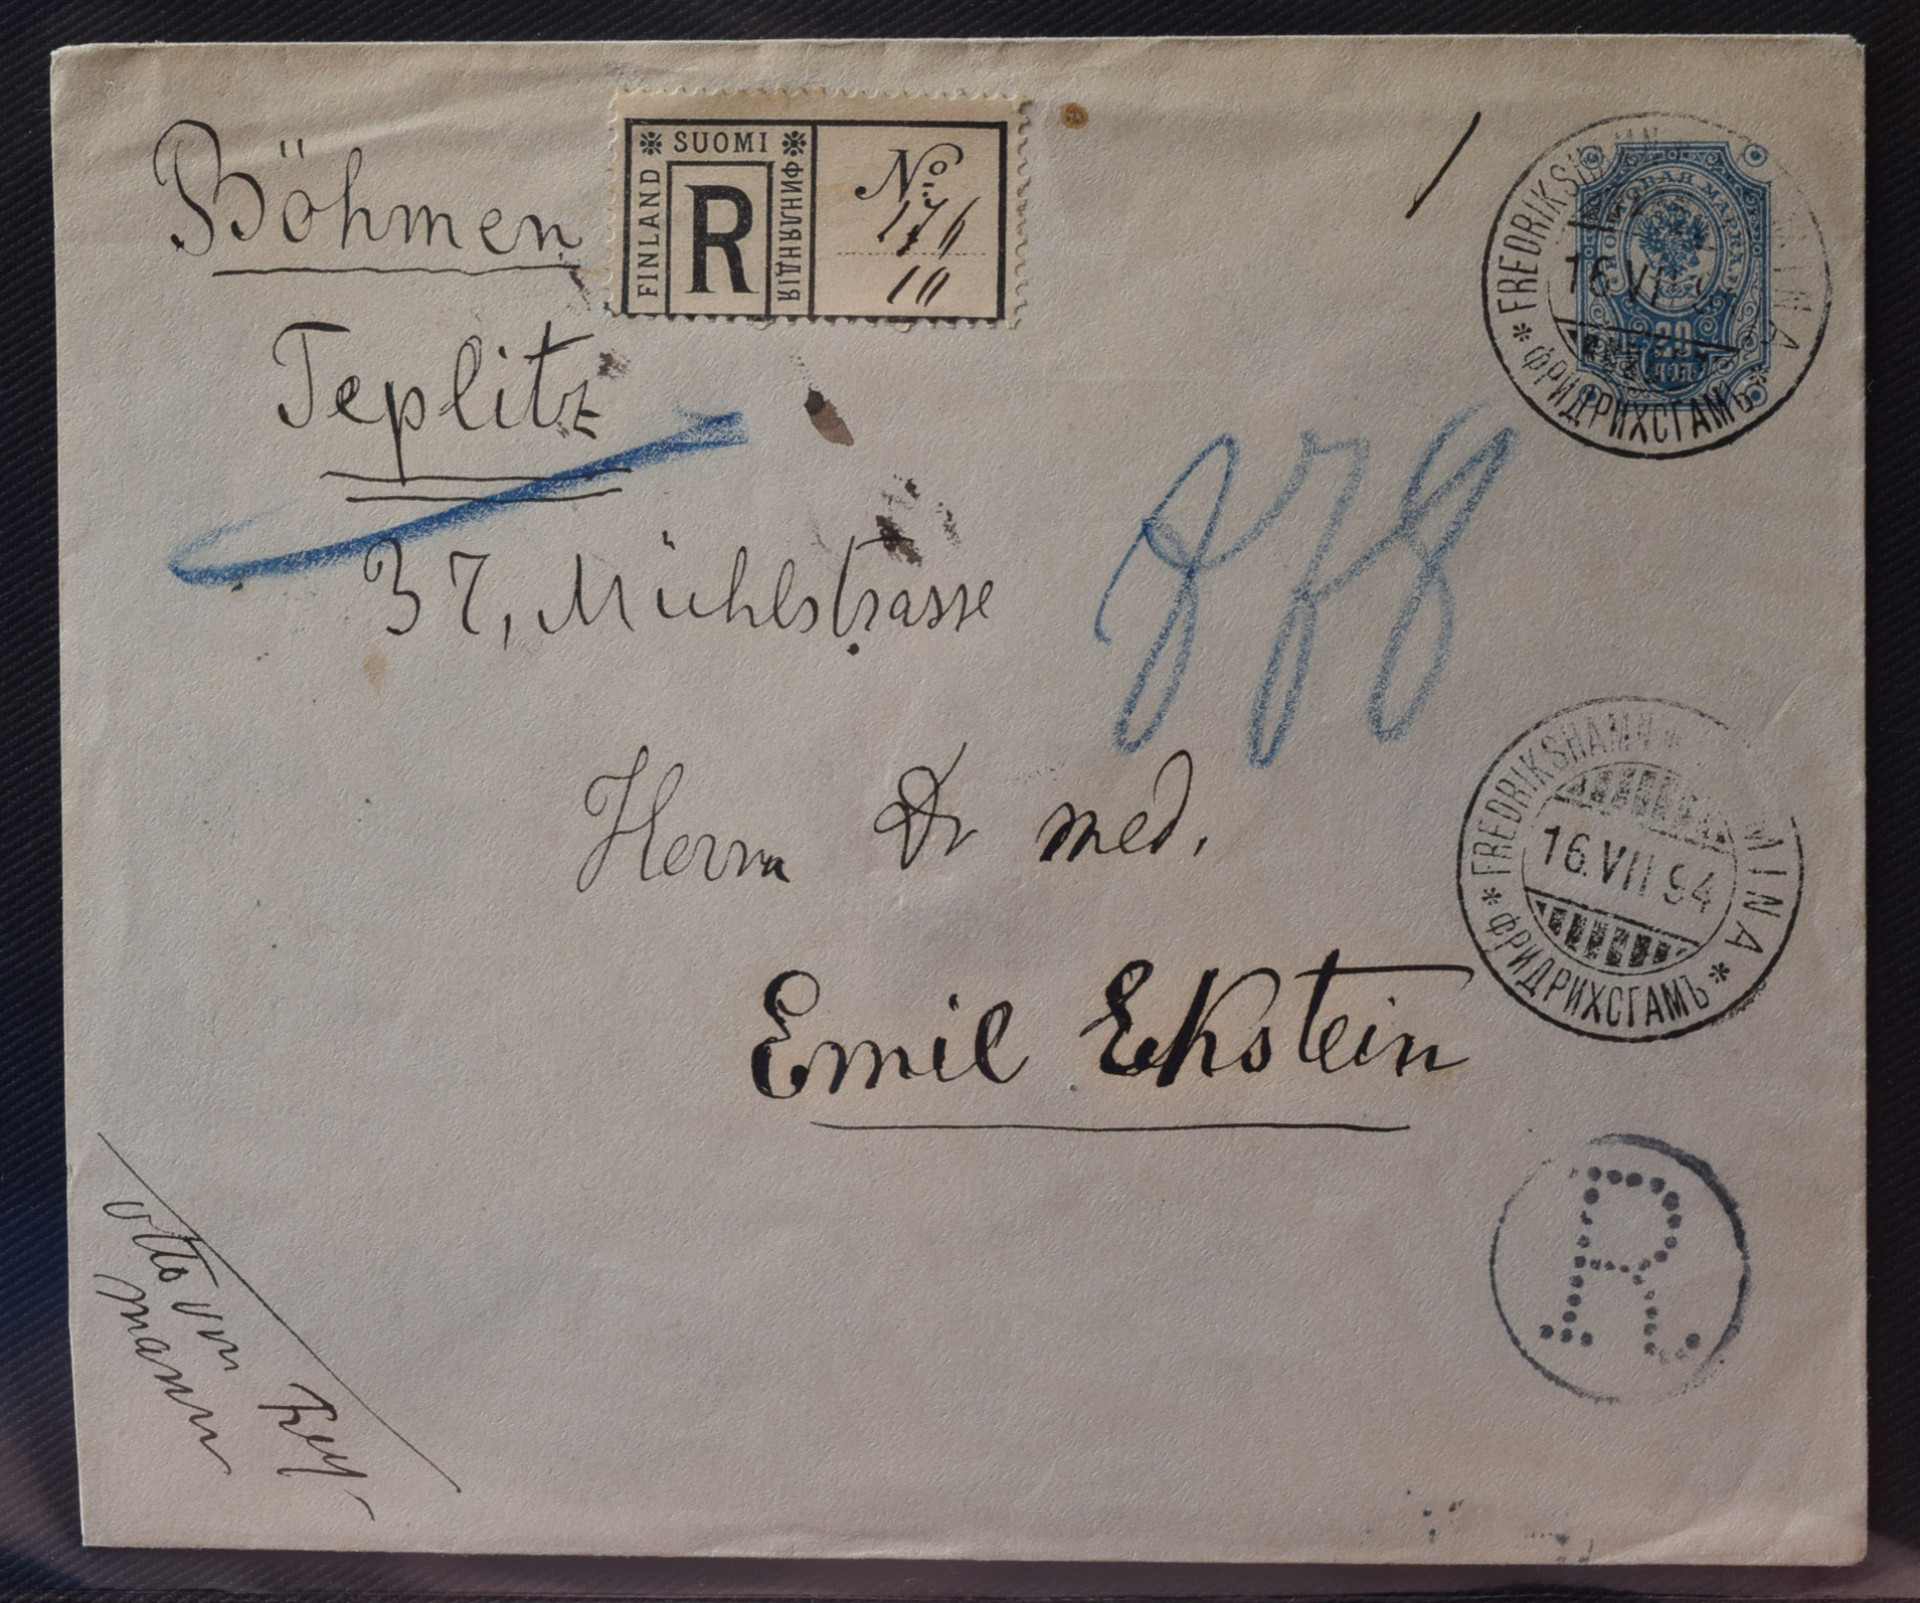 Böhmen
Teplitz
37, Mühlstrasse
Herrn Dr med.
Emil Ekstein
SUOMI
FINLAND
R
ФИНЛЯНДІЯ
No
176
10
ПОЧТОВАЯ МАРКА
20
КОП.
FREDRIKSHAMN
MINA
16 VII 9
ФРИДРИХСГАМЪ
FREDRIKSHAMN
MINA
16.VII 94
ФРИДРИХСГАМЪ
R
Otto von Hey-
mann